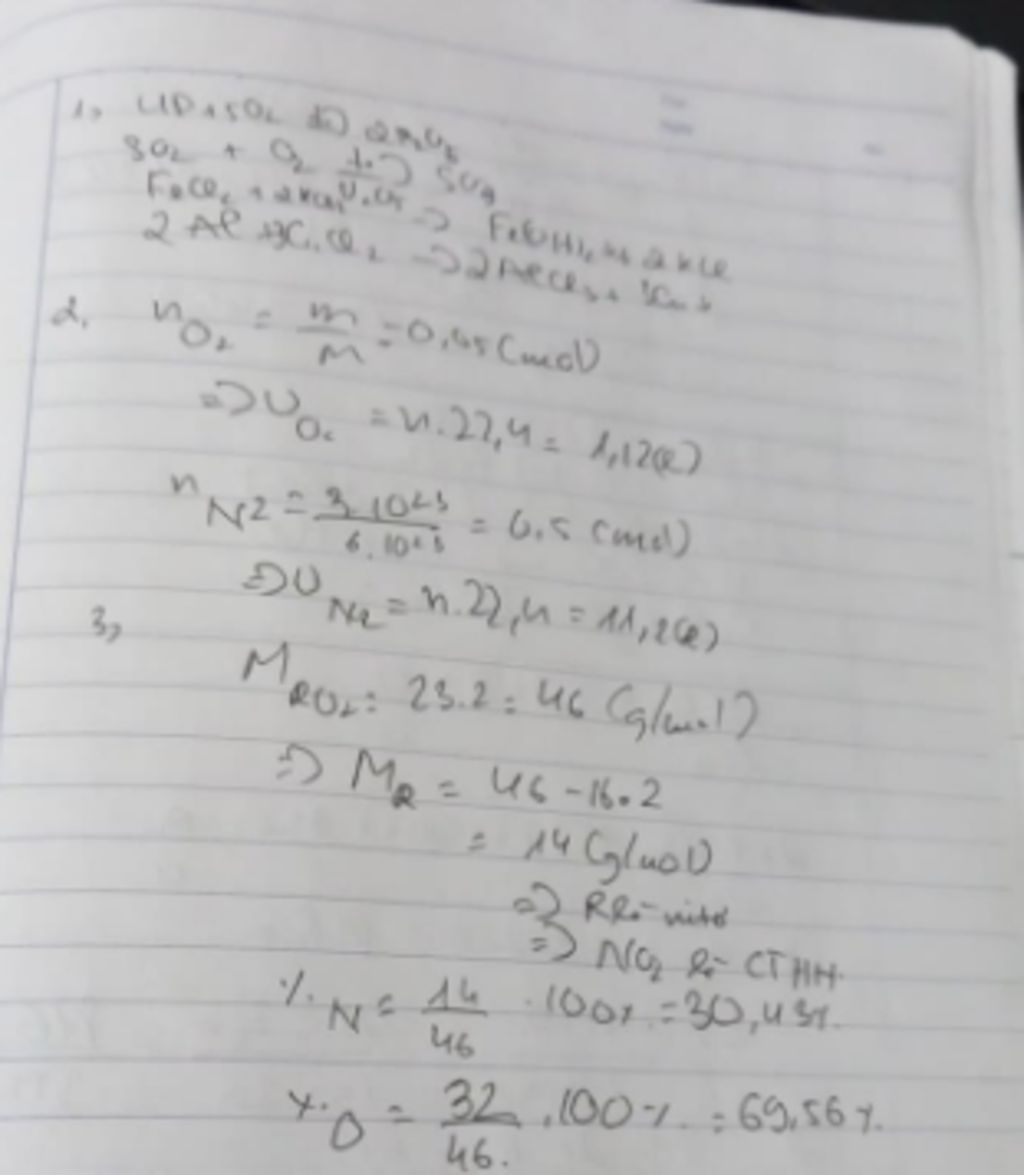 1, 4P + 5O2 2P2O5
SO2 + O2 SO3
FeCl2 + 2KOH -> Fe(OH)2 + 2KCl
2Al + 3CuCl2 -> 2AlCl3 + 3Cu
2. nO2 = m/M = 0,05 (mol)
=> VO2 = n.22,4 = 1,12(l)
nN2 = 3.10²³/6.10²³ = 0,5 (mol)
=> VN2 = n.22,4 = 11,2(l)
3,
MRO2 = 23.2 = 46 (g/mol)
=> MR = 46 - 16.2
= 14 (g/mol)
=> R là nitơ
=> NO2 là CTHH
%N = 14/46 .100% = 30,43%.
%O = 32/46. .100% = 69,56%.